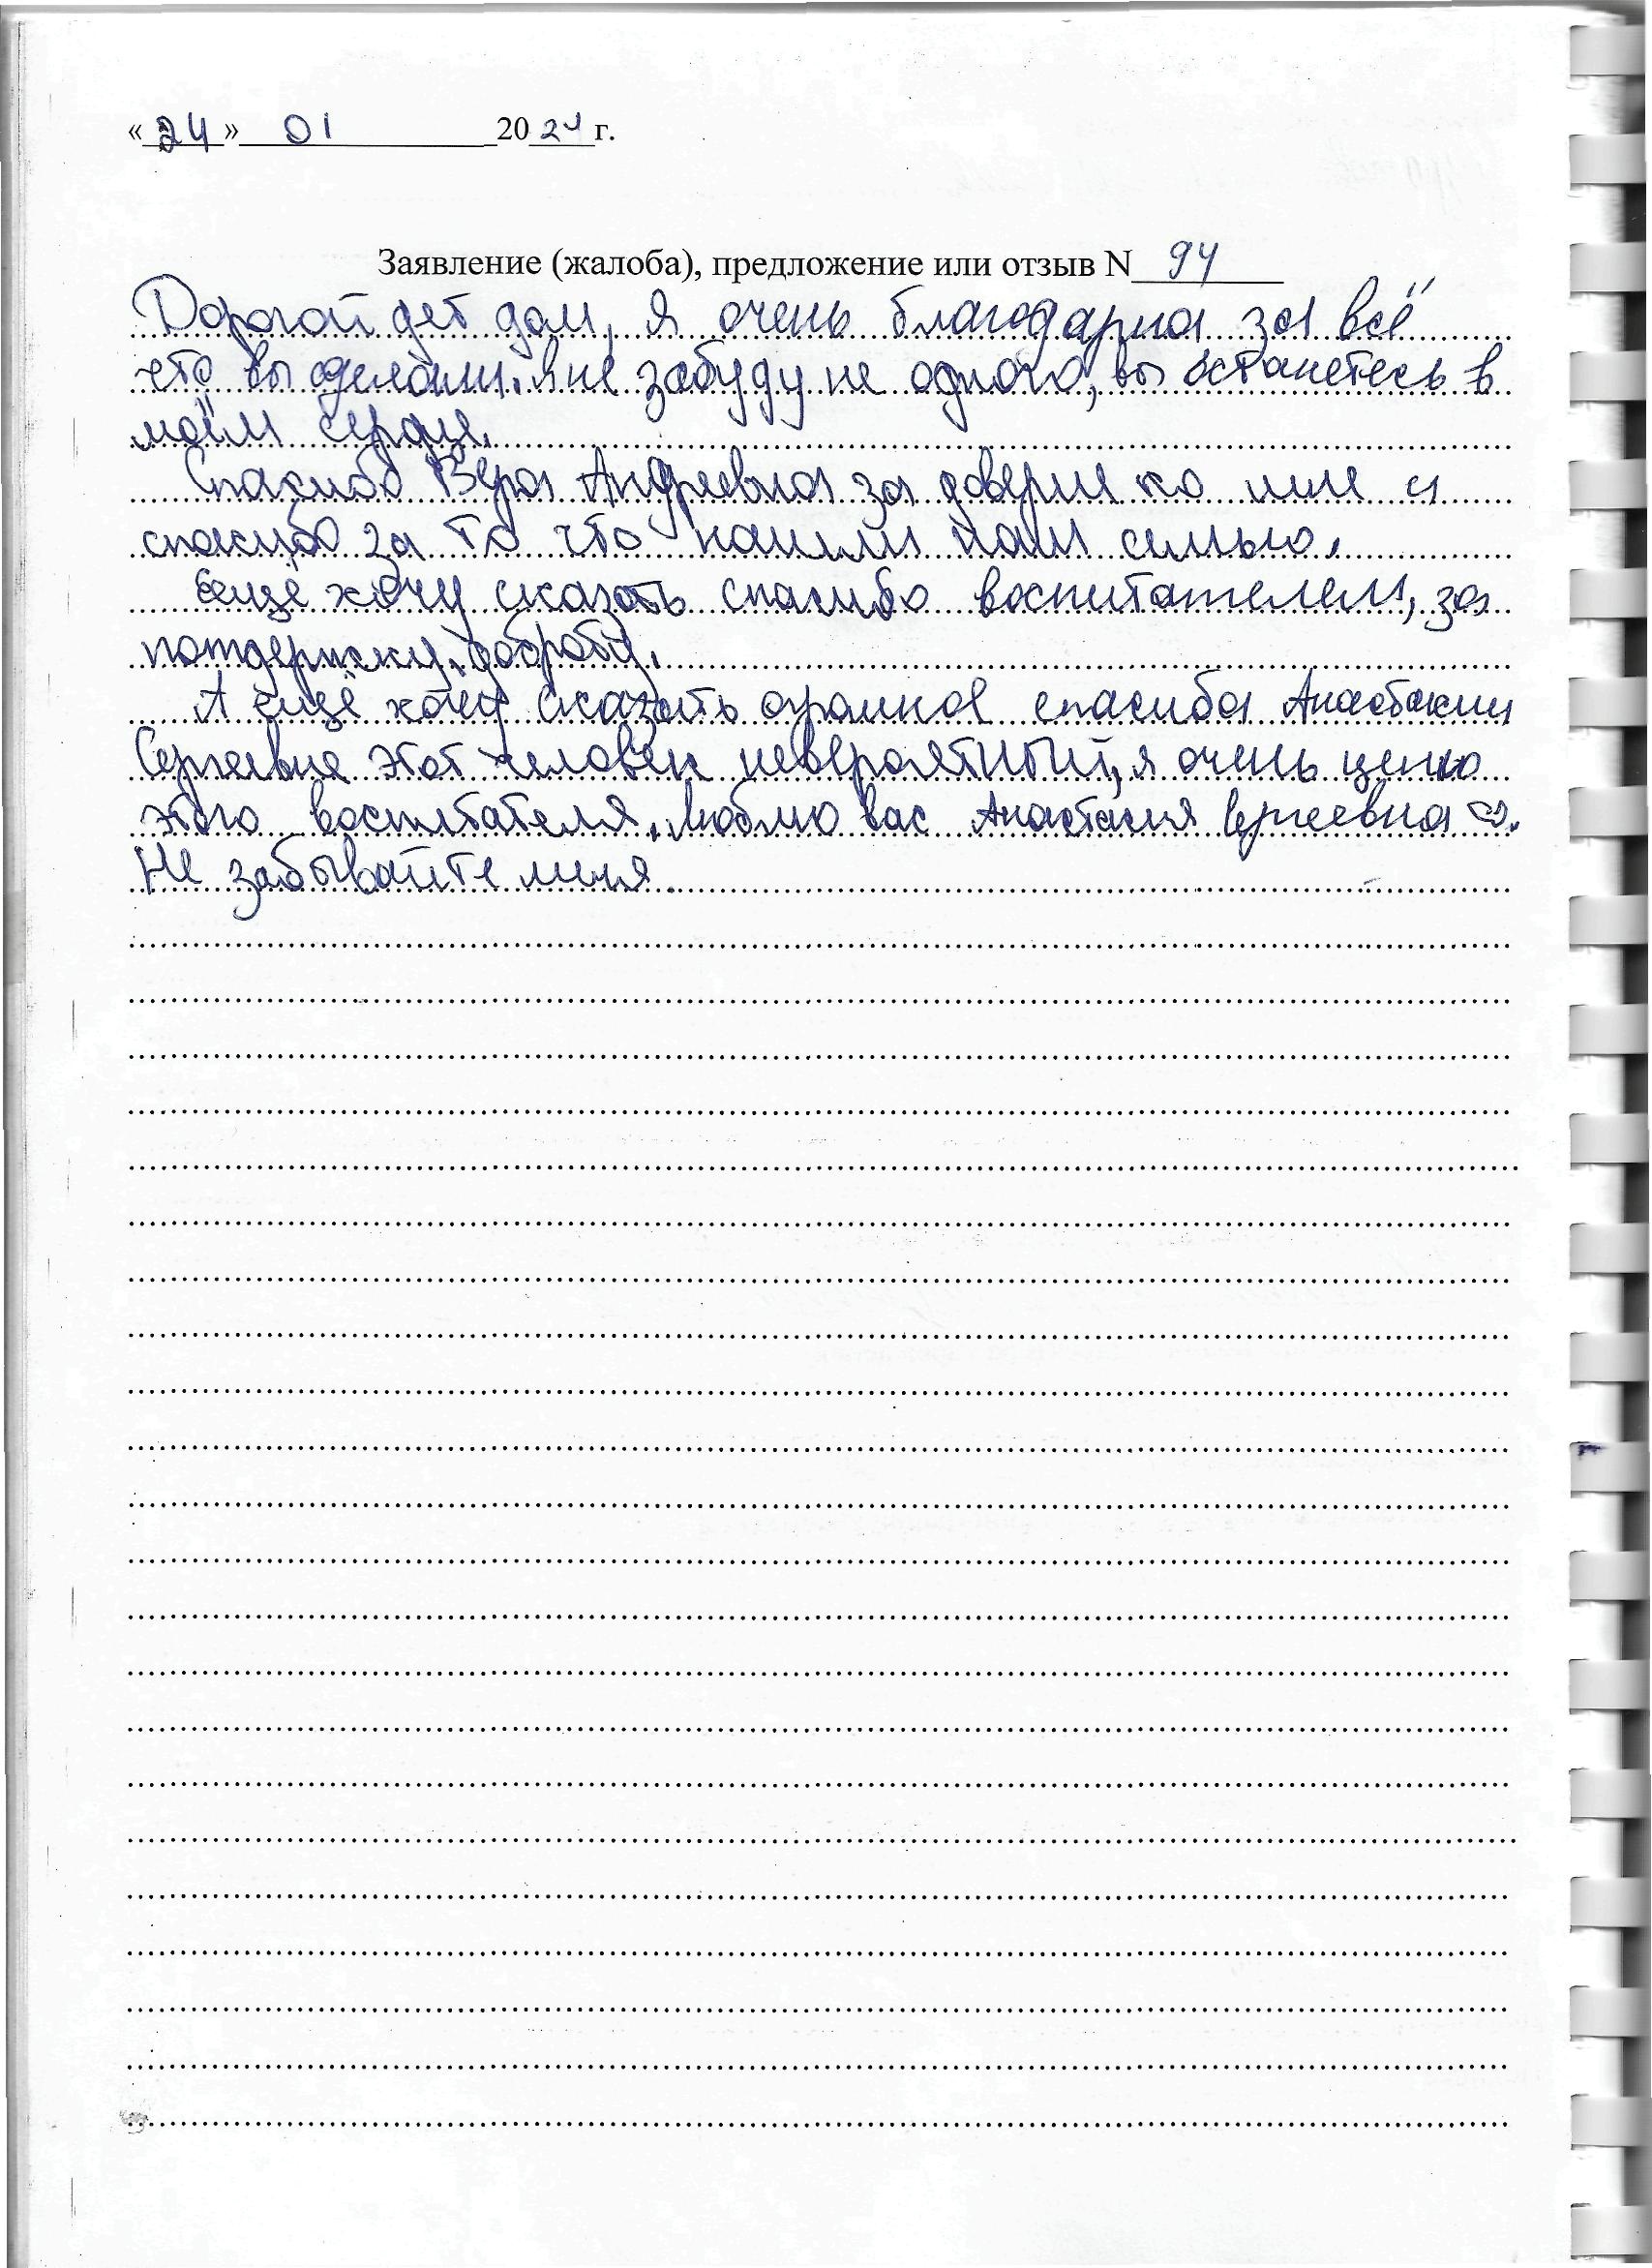 «24» 01 2024 г.
Заявление (жалоба), предложение или отзыв N 94
Дорогой дет дом, я очень благодарна за всё
что вы сделали. я не забуду не одного, вы останетесь в
моём сердце.
Спасибо Вера Андреевна за доверие ко мне и
спасибо за то что нашли нам семью.
Ещё хочу сказать спасибо воспитателем, за
потдержку, доброту.
А ещё хочу сказать огромное спасиба Анастасии
Сергеевне этот человек невероятный, я очень ценю
этого воспитателя. Люблю вас Анастасия Сергеевна ♡.
Не забывайте меня.